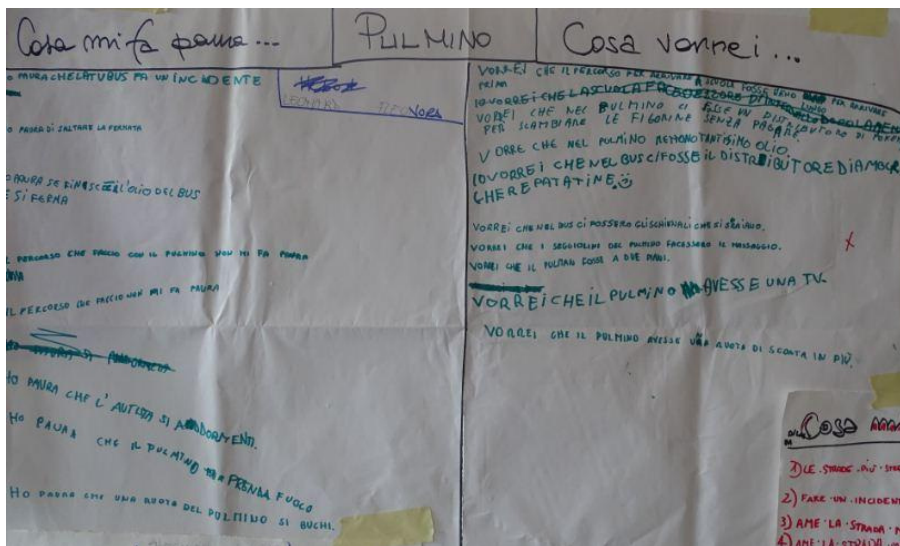 Cosa mi fa paura...
PULMINO
Cosa vorrei...
O PAURA CHE LATUBUS FA UN INCIDENTE
NORA
O PAURA DI SALTARE LA FERMATA
O PAURA SE FINISCE L'OLIO DEL BUS
E SI FERMA
IL PERCORSO CHE FACCIO CON IL PULMINO NON MI FA PAURA
IL PERCORSO CHE FACCIO NON MI FA PAURA
HO PAURA CHE L'AUTISTA SI ADDORMENTI.
HO PAURA CHE IL PULMINO PRENDA FUOCO
HO PAURA CHE UNA RUOTA DEL PULMINO SI BUCHI.
VORREI CHE IL PERCORSO PER ARRIVARE A SCUOLA FOSSE MENO LUNGO PER ARRIVARE
PRIMA
VORREI CHE NEL PULMINO CI FOSSE UN DISTRIBUTORE DI
PER SCAMBIARE LE FIGORINE SENZA PAGARE.
VORRE CHE NEL PULMINO METTONO TANTISIMO OLIO.
IO VORREI CHE NEL BUS CI FOSSE IL DISTRIBUTORE DI
GHER E PATATINE.
VORREI CHE NEL BUS CI FOSSERO GLI SCHIENALI CHE SI SDRAIANO.
VORREI CHE I SEGGIOLINI DEL PULMINO FACESSERO IL MASSAGGIO.
VORREI CHE IL PULMAN FOSSE A DUE PIANI.
VORREI CHE IL PULMINO AVESSE UNA TV.
VORREI CHE IL PULMINO AVESSE UNA RUOTA DI SCORTA IN PIÙ.
COSA
1) LE STRADE PIÙ
2) FARE UN INCIDENT
3) A ME LA STRADA
4) A ME LA STRADA